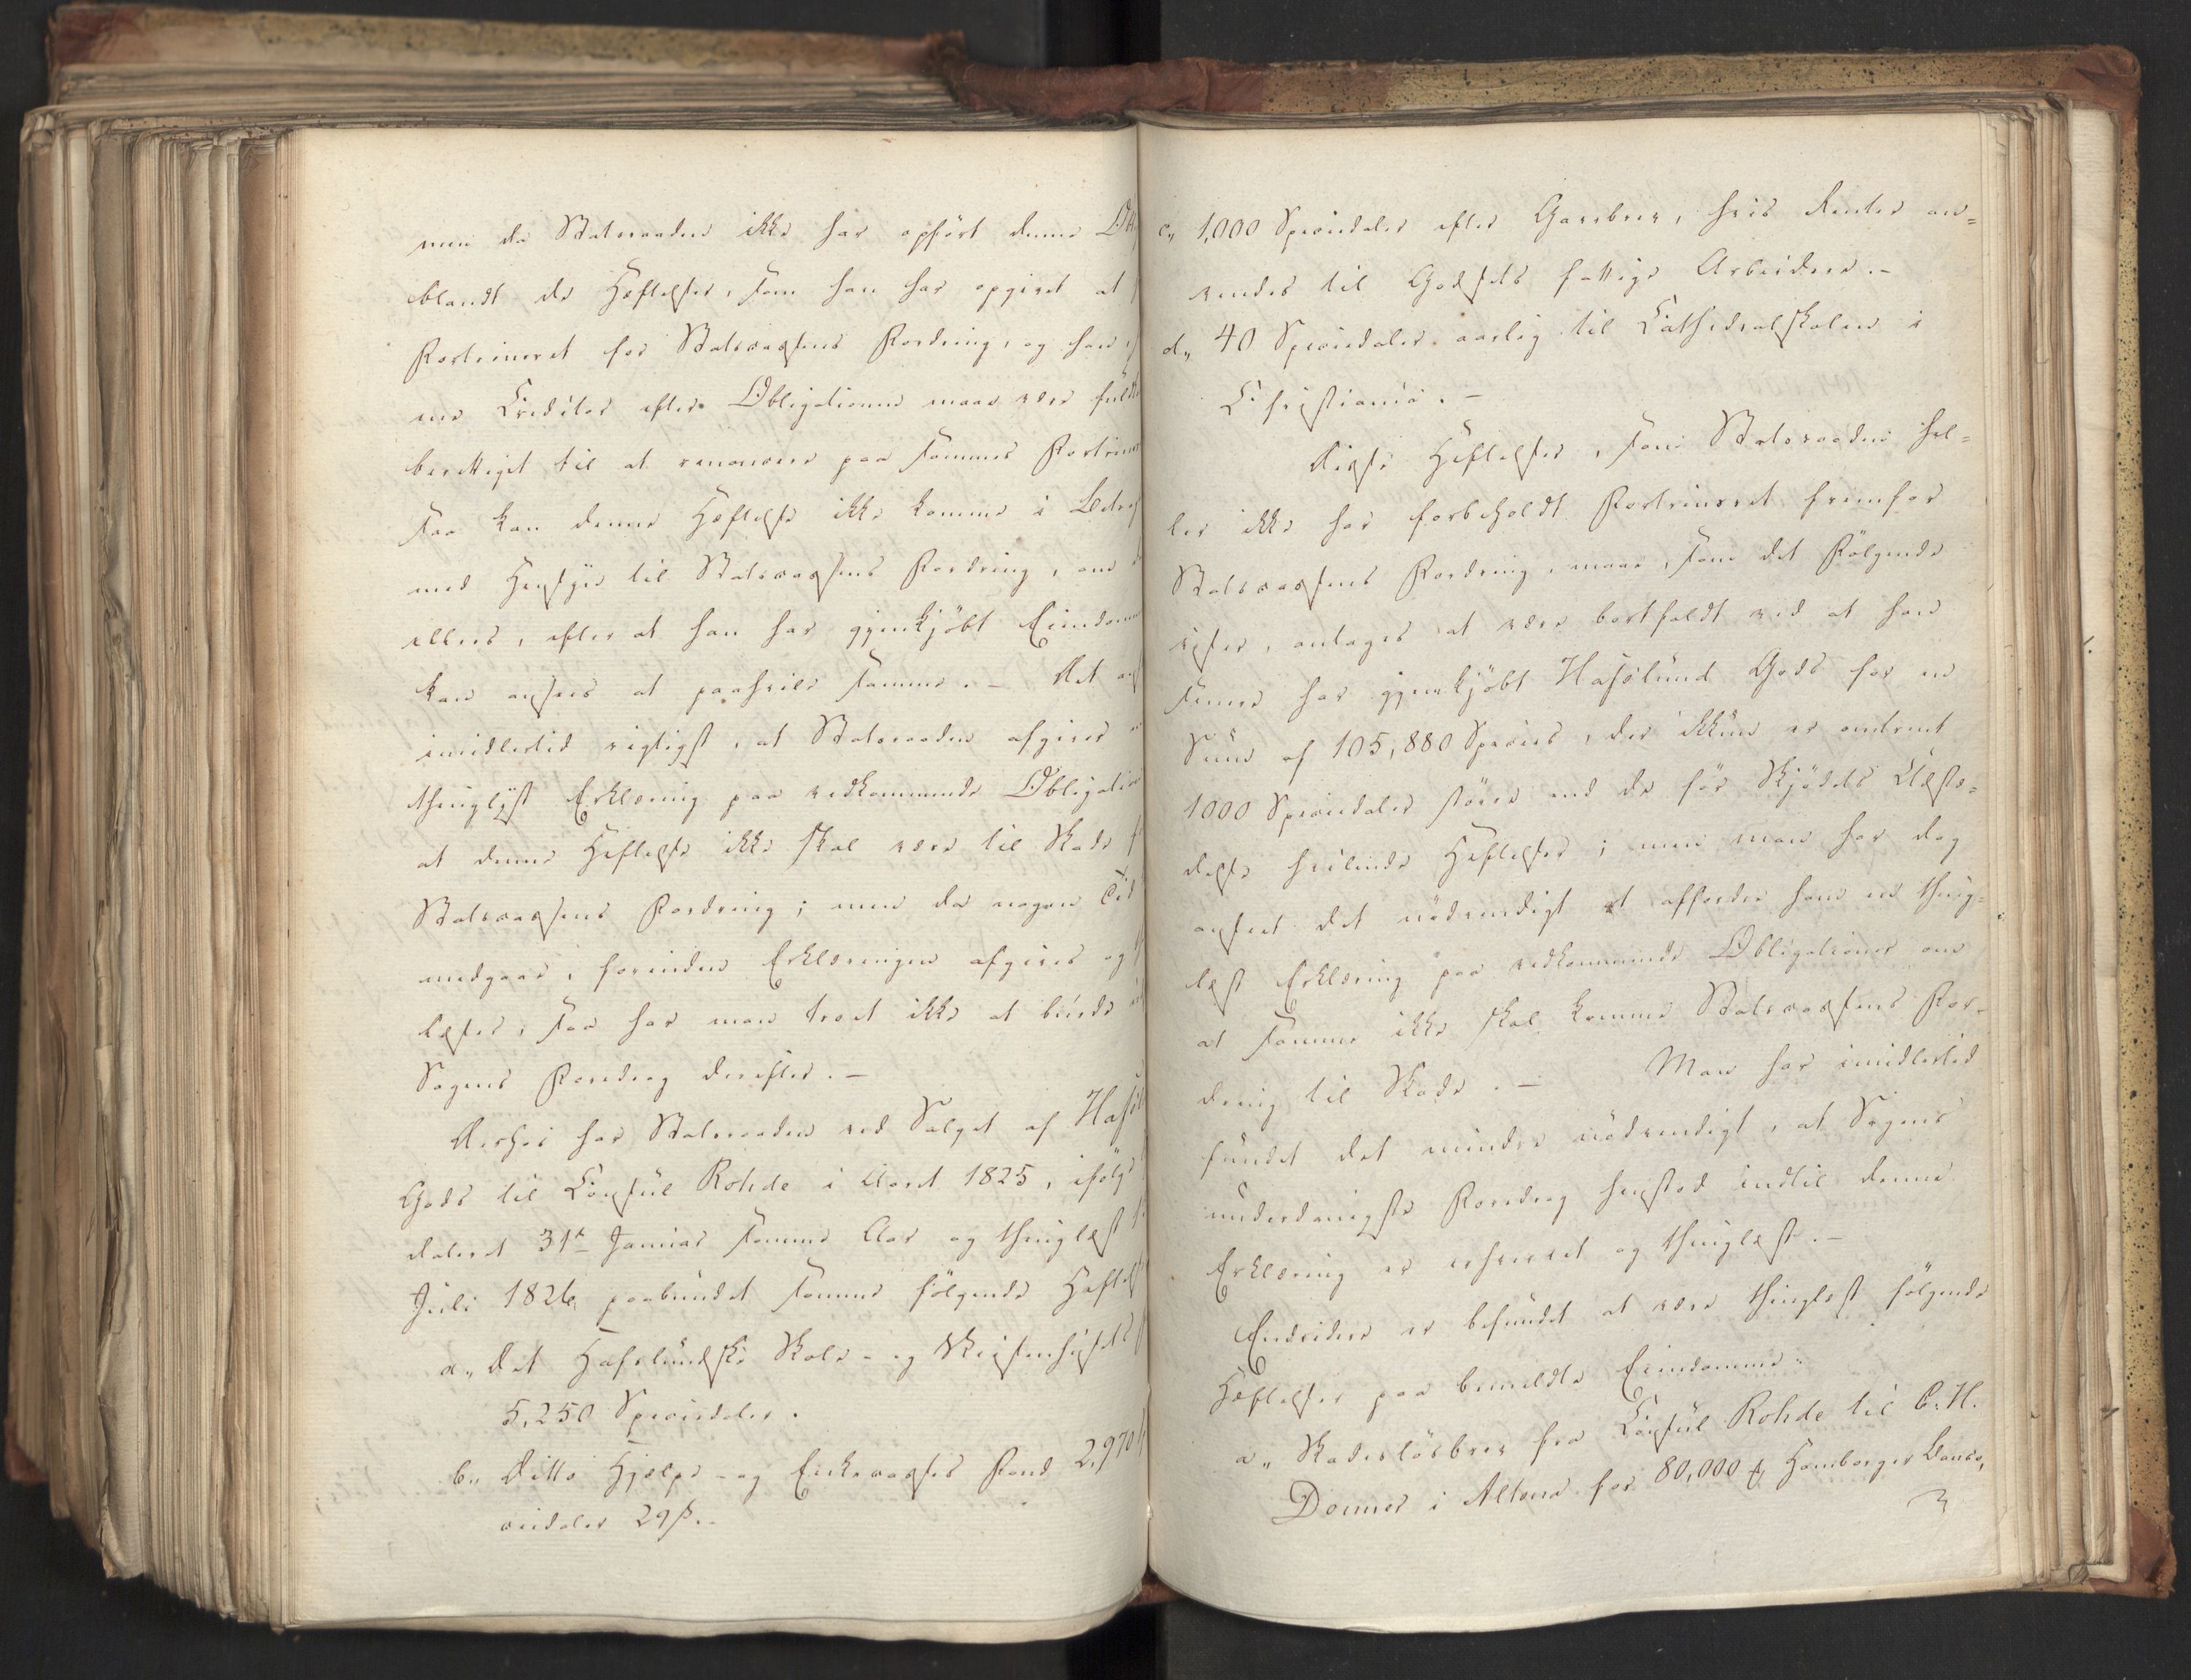 men da Statsraaden ikke har opført denne
blandt de Hæftelser, som han har opgivet at
Fortrinet for Statscassens Fordring, og han,
ene Creditor efter Obligationen maae være fuldt
berettiget til at renoncere paa sammes Fortrin
saa kan denne Hæftelse ikke komme i Betra
med Hensyn til Statscassens Fordring, om
ellers, efter at han har gjenkjöbt Eiendom
kan ansees at paahvile samme. - Det an
imidlertid rigtigst, at Statsraaden afgiver
thinglyst Erklæring paa vedkommende Obligation
at denne Hæftelse ikke skal være til Skade f
Statscassens Fordring; men da nogen Tid
medgaae, forinden Erklæringen afgives og
læses, saa har man troet ikke at burde
Sagens Foredrag derefter. -
Derhos har Statsraaden ved Salget af Hafsl
Gods til Consul Rohde i Aaret 1825, ifølge
dateret 31te Januar samme Aar og thinglæst
Juli 1826, paabundet samme følgende Hæftels
a„ Det Hafslundske Skole- og
5,250 Speciedaler.
b„ Ditto Hjelpe- og Enkecasses Fond 2,970
ciedaler 29 ß. -
c„ 1,000 Speciedaler efter Gavebrev, hvis Renter an=
vendes til Godsets fattige Arbeidere. -
d„ 40 Speciedaler aarlig til Cathedralskolen i
Christiania. -
Disse Hæftelser, som Statsraaden hel=
ler ikke har forbeholdt Fortrinsret fremfor
Statscassens Fordring, maae, som det Følgende
viser, antages at være bortfaldt ved at han
senere har gjenkjöbt Hafslund Gods for en
Sum af 105,880 Species, der ikkun er omtrent
1000 Speciedaler større end de før Skjødets Udste=
delse hvilende Hæftelser; men man har dog
anseet det nødvendigt at affordre ham en thing=
læst Erklæring paa vedkommende Obligationer om
at samme ikke skal komme Statscassens For=
dring til Skade. - Man har imidlertid
fundet det mindre nødvendigt, at Sagens
underdanigste Foredrag henstod indtil denne
Erklæring er erhvervet og thinglæst. -
Endvidere er befundet at være thinglæst følgende
Hæftelser paa bemeldte Eiendomme.
a„ Skadesløsbrev fra Consul Rohde til C. H.
Donner i Altona for 80,000 ₻ Hamborger Banco,